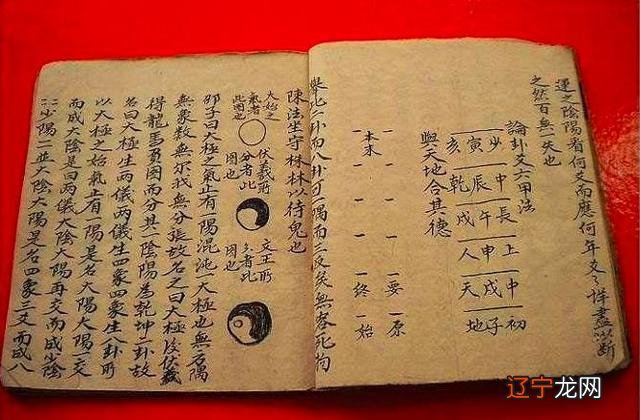 運之陰陽看何爻而應何年爻々詳盡以斷
之然百無一失也
論卦爻六甲法
少 中 長 上 中 初
寅 辰 午 申 戌 子
亥 乾 戌 人 天 地
與天地合其德
一要 一原
本末 一終 一始
舉此二卦而八卦可一隅而三反矣無吝死拘
陳法坐守株林以待兔也
大始之氣者此圖也
伏羲所分者此圖也
文王所分者此圖也
邵子曰大極之氣止有一陽混沌大極也無方隅
無象数無尔我無分張故名之曰大極後伏羲
得龍馬負圖而分其一陰陽為乾坤二卦故
名曰大極生兩儀兩儀生四象四象生八卦所
以大極之始氣止有一陽是名大陽大陽一爻
而成大陰是曰兩儀大陰大陽再交而成少陰
少陽一並大陰大陽是名四象三爻而成八
辽宁龙网